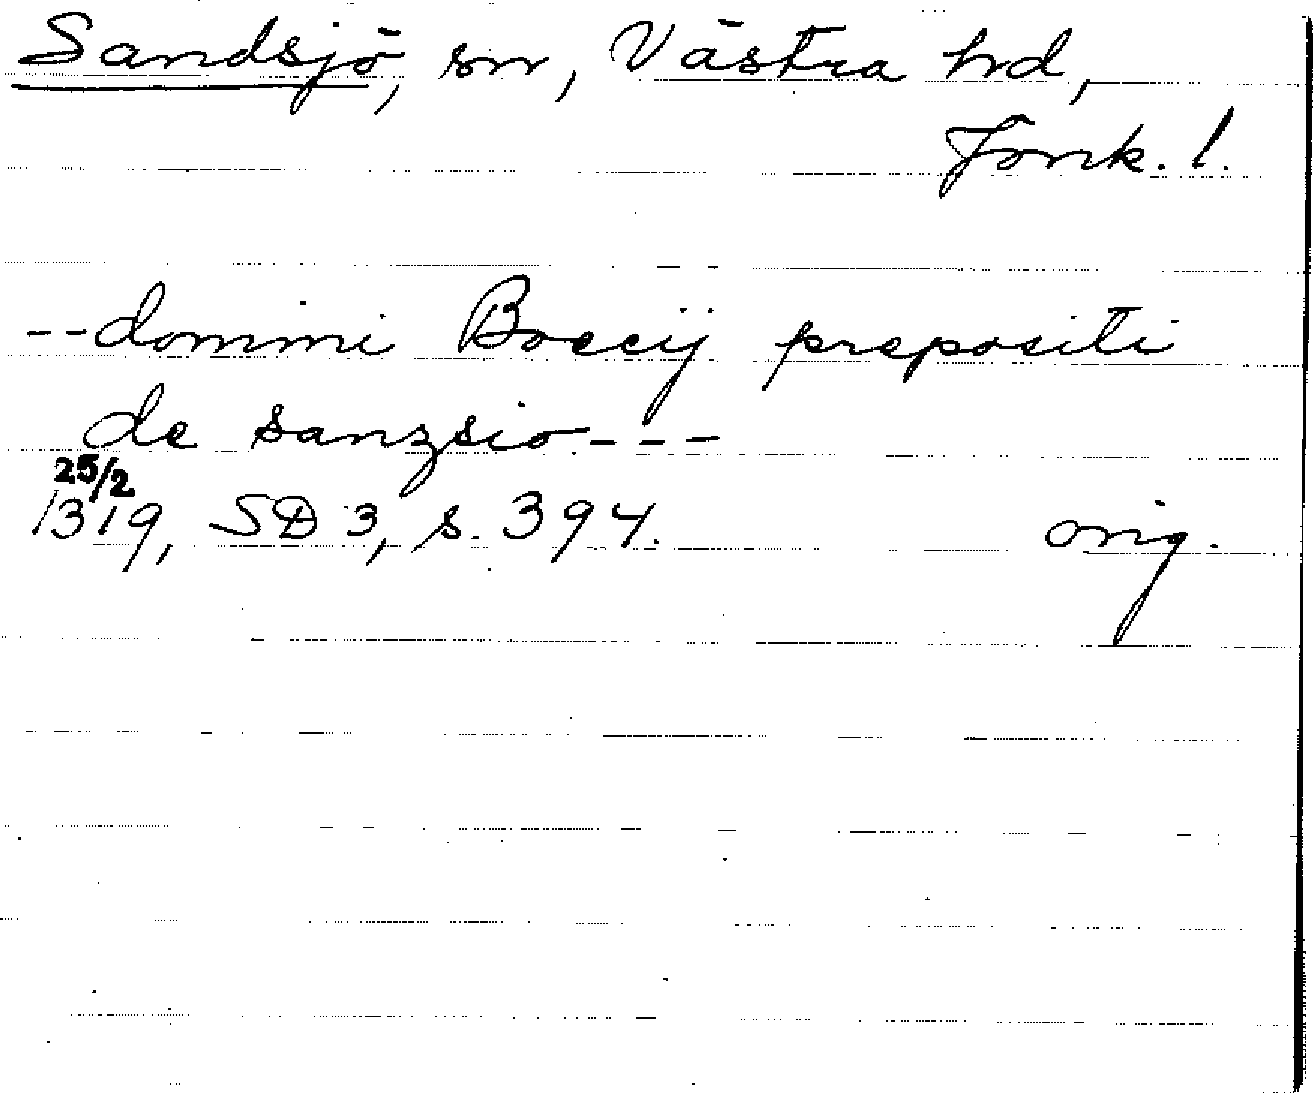 Sandsjö, sn, Västra hd,
Jönk. l.
--domini Boecij prepositi
de sanzsio---
25/2
1319, SD 3, s. 394. orig.